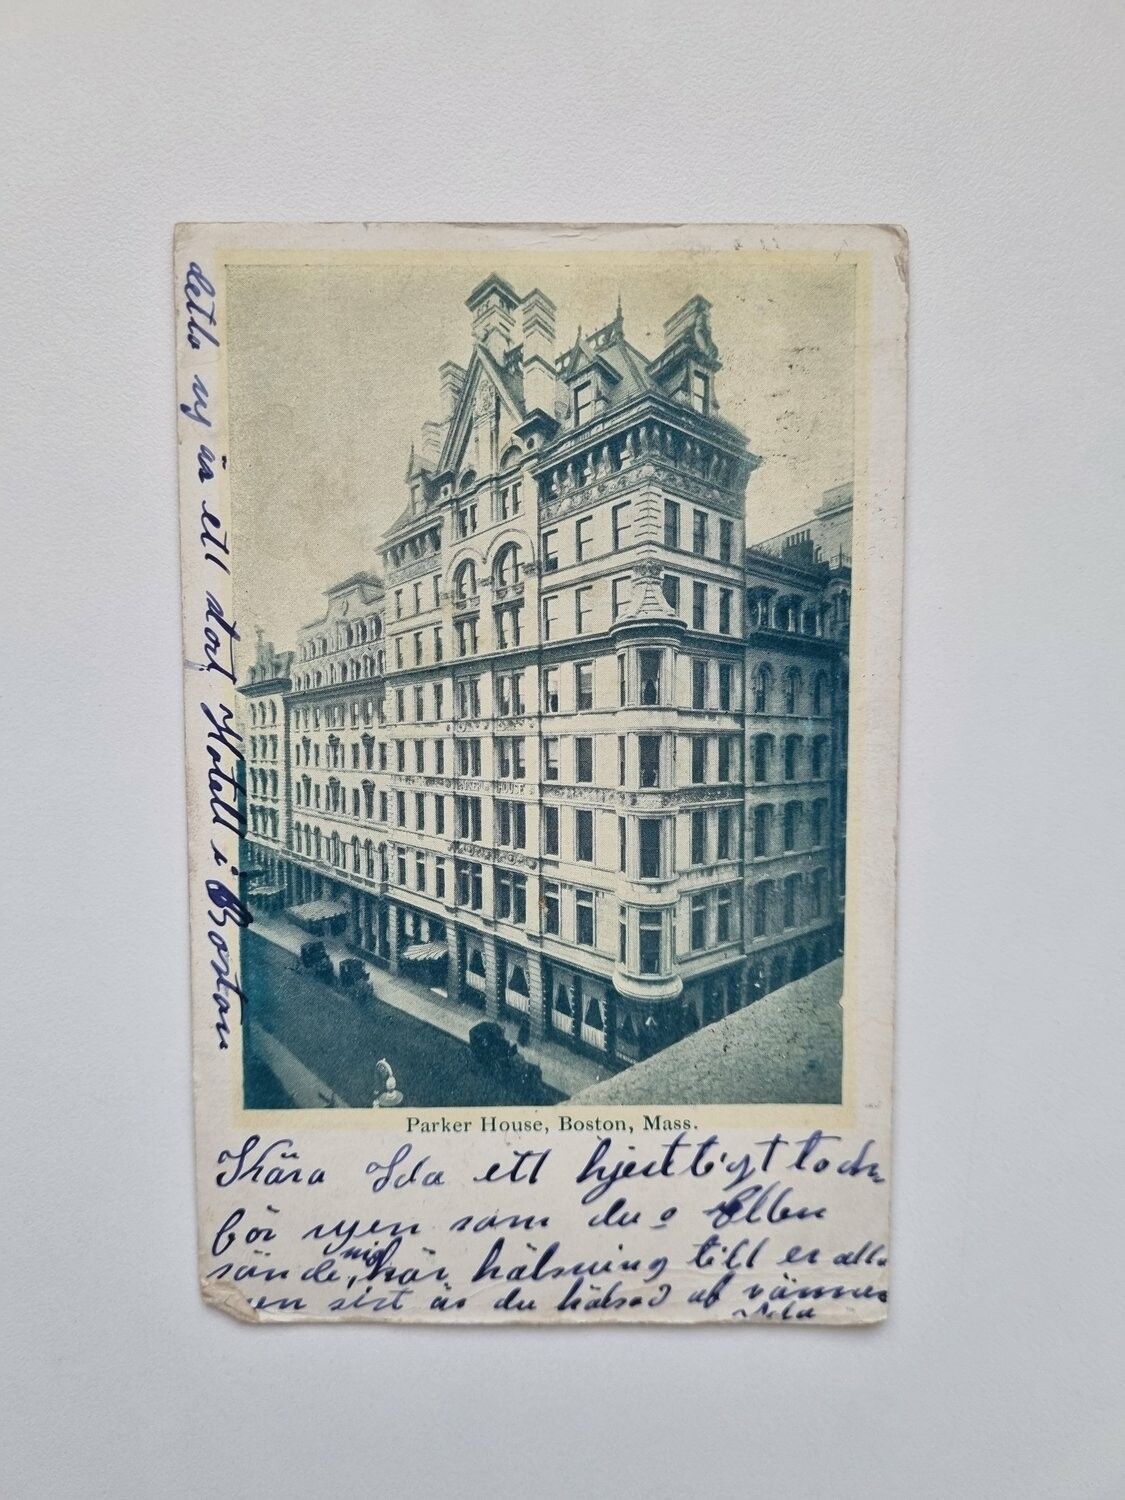 detta vy är ett stort Hotell i Boston
Parker House, Boston, Mass.
Kära Ida ett hjertligt tack
för vyen som du o Ellen
sände mig, kär hälsning till er alla
men sist är du hälsad af vännen